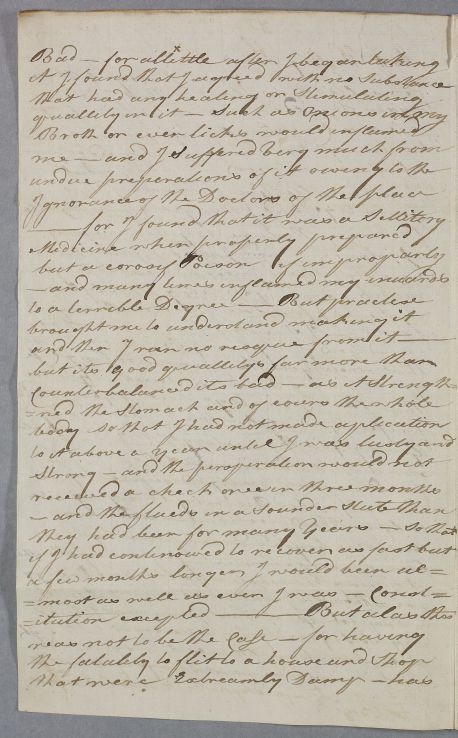 Bad — for a little after I began taking
it I found that I agreed with no substance
that had any healing or Stimulating
quallity in it — Such as Onions in my
Broth or even liches would inflamed
me — and I suffered very much from
undue preparations of it owing to the
Ignorance of the Doctors of the place
— for I found that it was a Sillitory
Medicine when properly prepared
but a corosif Poison if improparly
— and many times inflamed my inwards
to a terrible Degree — But practise
brought me to understand making it
and then I ran no risque from it —
but its good quallitys far more than
Counterbalanced its bad — as it Strength=
=ned the Stomach and of cours the whole
body so that I had not made aplication
to it above a year until I was lusty and
Strong — and the perspiration would not
received a check once in three months
— and the fluids in a sounder state than
they had been for many Years — so that
if I had continowed to recover as fast but
a few months longer I would been al=
=most as well as ever I was — Const=
=itution excepted — But alas this
was not to be the Case — for having
the fatality to flit to a house and Shop
that were Extreamly Damp — has